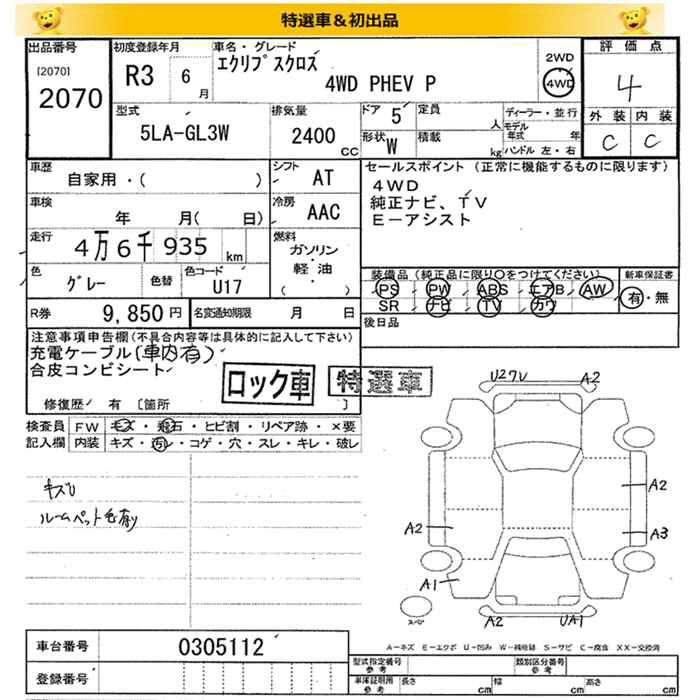 特選車&初出品
出品番号 初度登録年月 車名・グレード 評価点
[2070] R3 6月 エクリプスクロス 2WD 4
2070 4WD PHEV P 4WD
型式 排気量 ドア 5 定員 人 ディーラー・並行 外装 内装
5LA-GL3W 2400cc 形状 W 積載 kg モデル年式 年 ハンドル 左・右 C C
車歴 シフト セールスポイント (正常に機能するものに限ります)
自家用・( ) AT 4WD
車検 冷房 純正ナビ、TV
年 月( 日) AAC E-アシスト
走行 燃料
4万6千935km ガソリン・軽油・( )
色 色替 色コード 装備品(純正品に限り○をつけてください) 新車保証書
グレー U17 PS PW ABS エアB AW 有・無
R券 9,850円 名変通知期限 月 日 SR ナビ TV カワ
後日品
注意事項申告欄(不具合内容等は具体的に記入して下さい)
充電ケーブル(車内有)
合皮コンビシート ロック車 特選車
修復歴 有 [箇所 ]
検査員 FW キズ・飛石・ヒビ割・リペア跡・×要
記入欄 内装 キズ・汚レ・コゲ・穴・スレ・キレ・破レ
キズU
ルームペット毛有り
U2 A2
A2
A2 A3
A1
スペア A2 UA1
A-キズ E-エクボ U-凹み W-補修跡 S-サビ C-腐食 XX-交換済
車台番号 0305112 型式指定番号 参考 類別区分番号 参考
登録番号 車庫証明用 参考 長さ cm 幅 cm 高さ cm